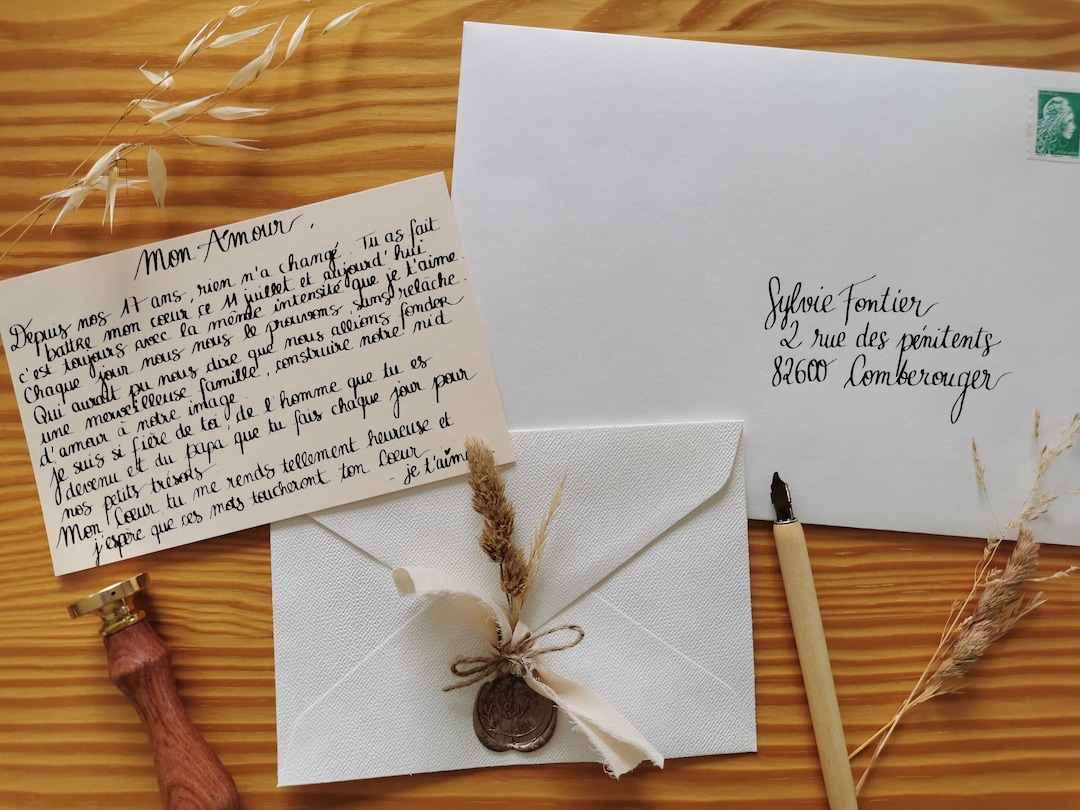 Mon Amour,
Depuis nos 17 ans, rien n'a changé. Tu as fait
battre mon cœur ce 11 juillet et aujourd'hui
c'est toujours avec la même intensité que je t'aime.
Chaque jour nous nous le prouvons, sans relâche.
Qui aurait pu nous dire que nous allions fonder
une merveilleuse famille, construire notre nid
d'amour à notre image.
Je suis si fière de toi, de l'homme que tu es
devenu et du papa que tu fais chaque jour pour
nos petits trésors
Mon Coeur, tu me rends tellement heureuse et
j'espère que ces mots toucheront ton Coeur
- je t'aime
Sylvie Fontier
2 rue des pénitents
82600 Comberouger